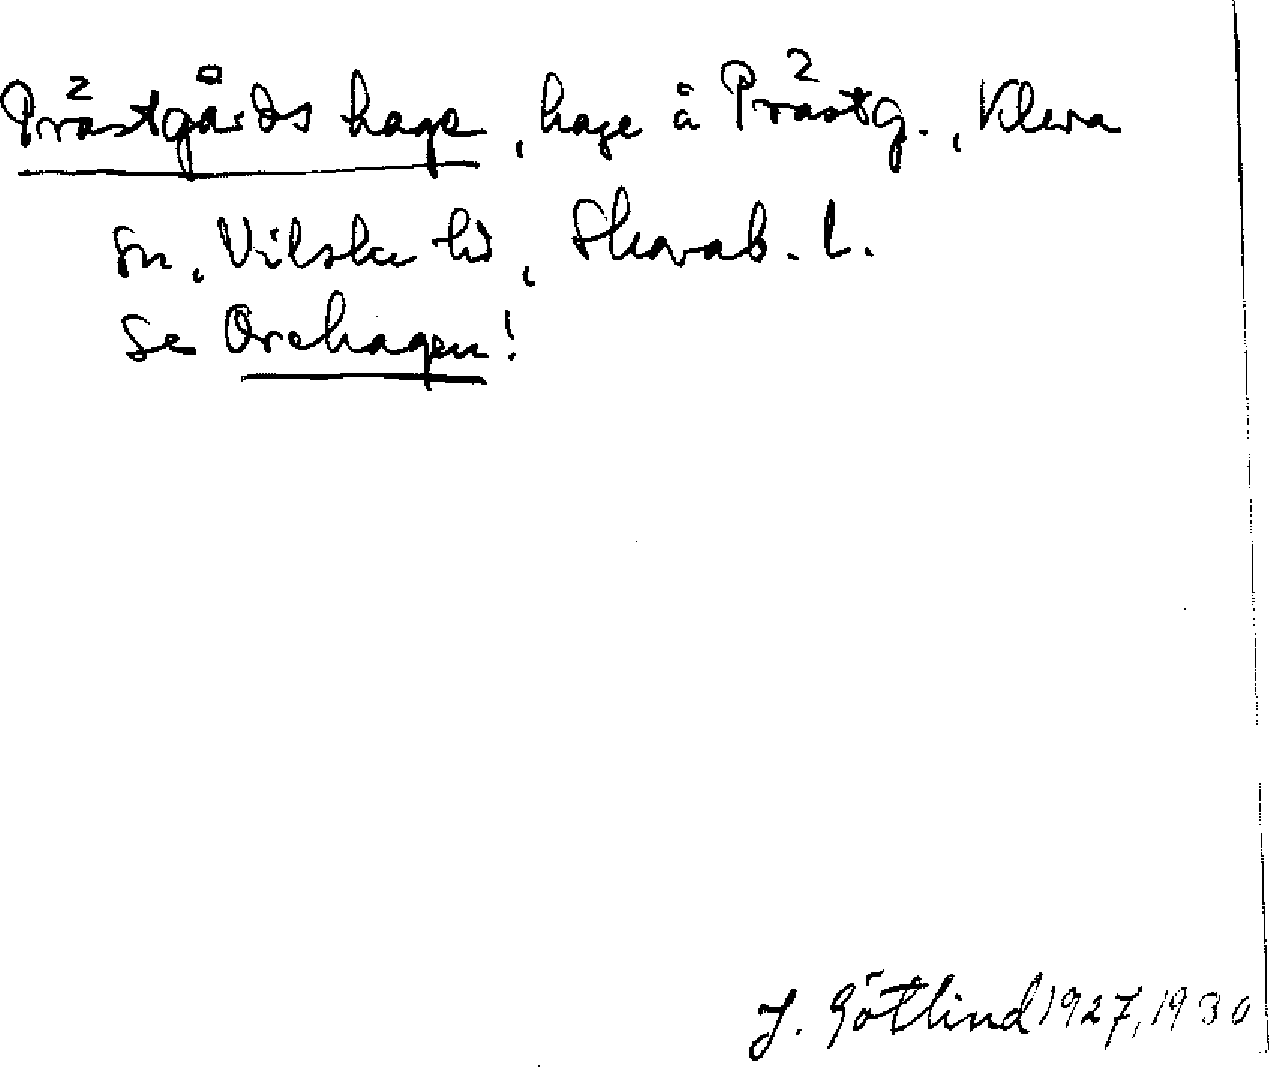 Prästgårds hage, hage å Prästg., Kleva
sn, Vilske hd, Skarab. l.
se Orehagen!
J. Götlind 1927, 1930